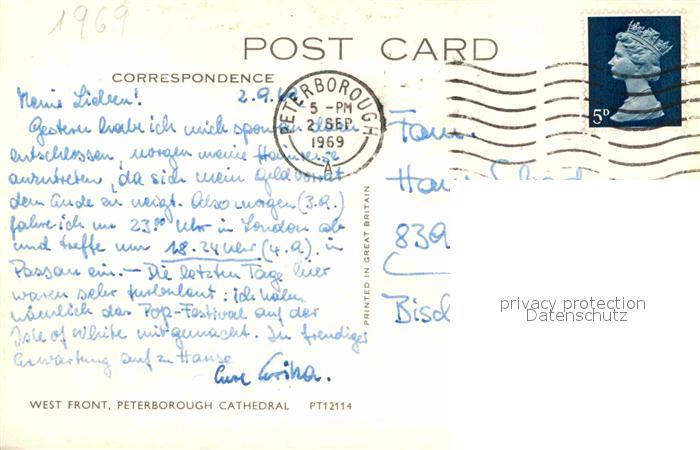 1969
POST CARD
CORRESPONDENCE
Meine Lieben! 2.9.69
PETERBOROUGH
5 - PM
2 SEP
1969
A
5D
Gestern habe ich mich spontan
entschlossen, morgen meine Heimreise
anzutreten, da sich mein Geldvorrat
dem Ende zu neigt. Also morgen (3.9.)
fahre ich um 23.00 Uhr in London ab
und treffe um 18.24 Uhr (4.9.) in
Passau ein. – Die letzten Tage hier
waren sehr turbulent: ich habe
nämlich das Pop-Festival auf der
Isle of White mitgemacht. In freudiger
Erwartung auf zu Hause
Eure Erika.
Fam.
839
Bisch
PRINTED IN GREAT BRITAIN
privacy protection
Datenschutz
WEST FRONT, PETERBOROUGH CATHEDRAL PT12114